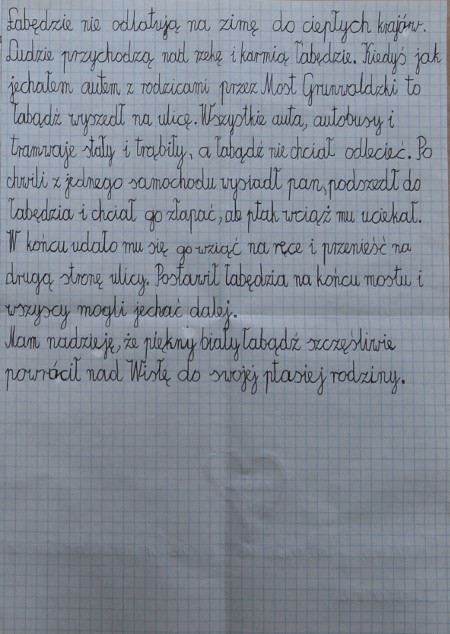 Łabędzie nie odlatują na zimę do ciepłych krajów.
Ludzie przychodzą nad rzekę i karmią łabędzie. Kiedyś jak
jechałem autem z rodzicami przez Most Grunwaldzki to
łabądź wyszedł na ulicę. Wszystkie auta, autobusy i
tramwaje stały i trąbiły, a łabądź nie chciał odlecieć. Po
chwili z jednego samochodu wysiadł pan, podszedł do
łabędzia i chciał go złapać, ale ptak wciąż mu uciekał.
W końcu udało mu się go wziąć na ręce i przenieść na
drugą stronę ulicy. Postawił łabędzia na końcu mostu i
wszyscy mogli jechać dalej.
Mam nadzieję, że piękny biały łabądź szczęśliwie
powrócił nad Wisłę do swojej ptasiej rodziny.